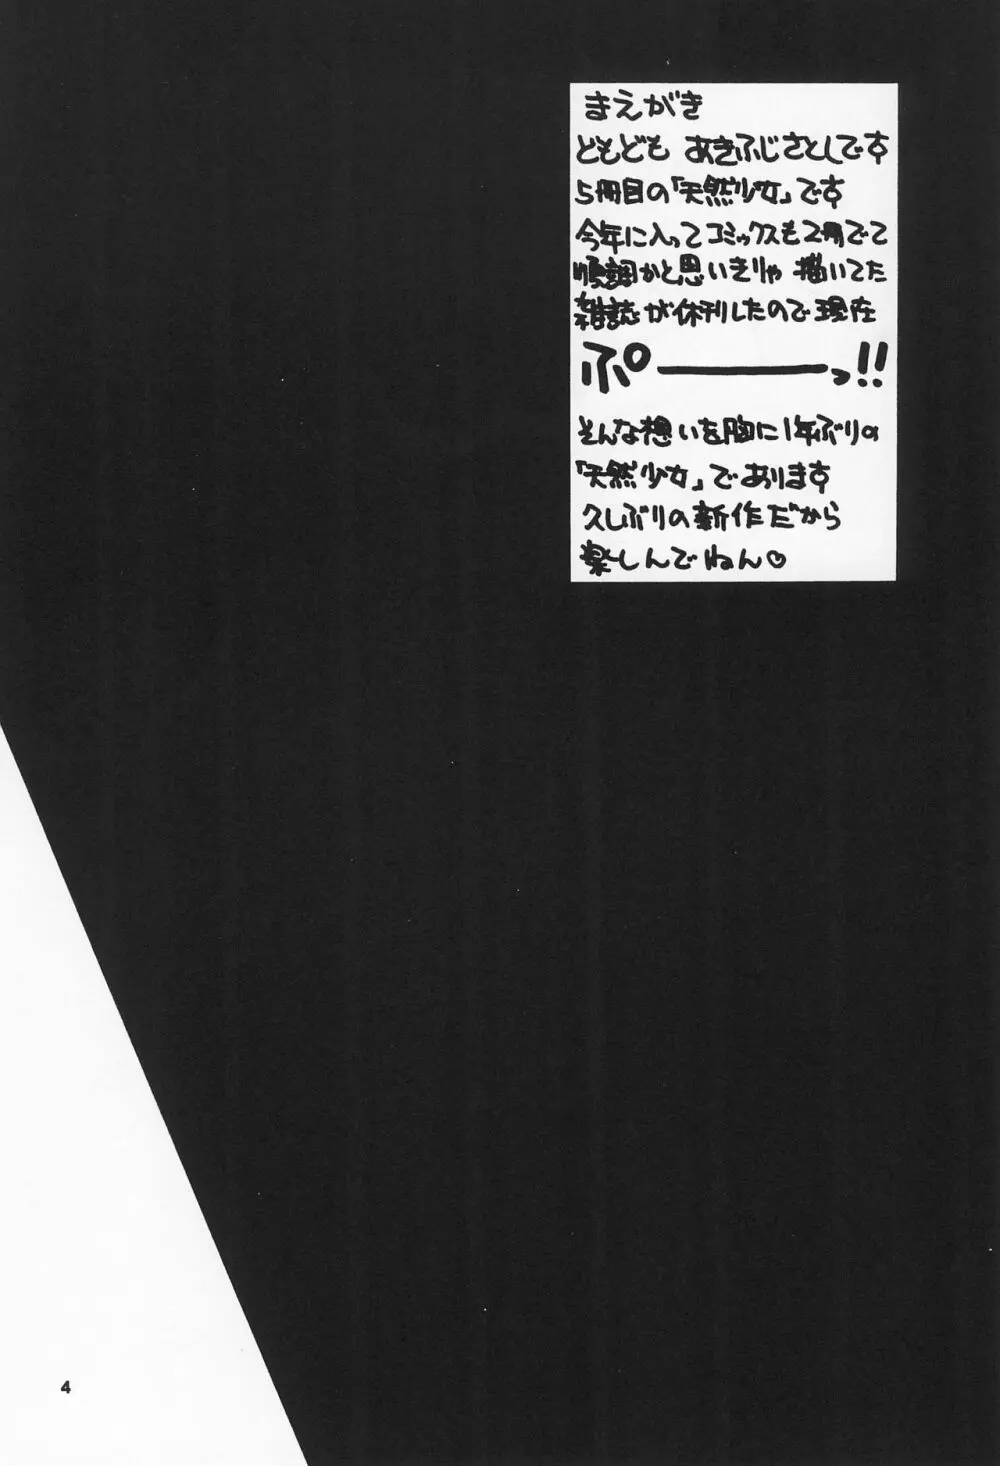 まえがき
ともども あきふじさとしです
5冊目の「天然少女」です
今年に入ってコミックスも2冊でて
順調かと思いきりゃ 描いてた
雑誌が休刊したので現在
ぷーーっ!!
そんな想いを胸に1年ぶりの
「天然少女」であります
久しぶりの新作だから
楽しんでねん♡
4